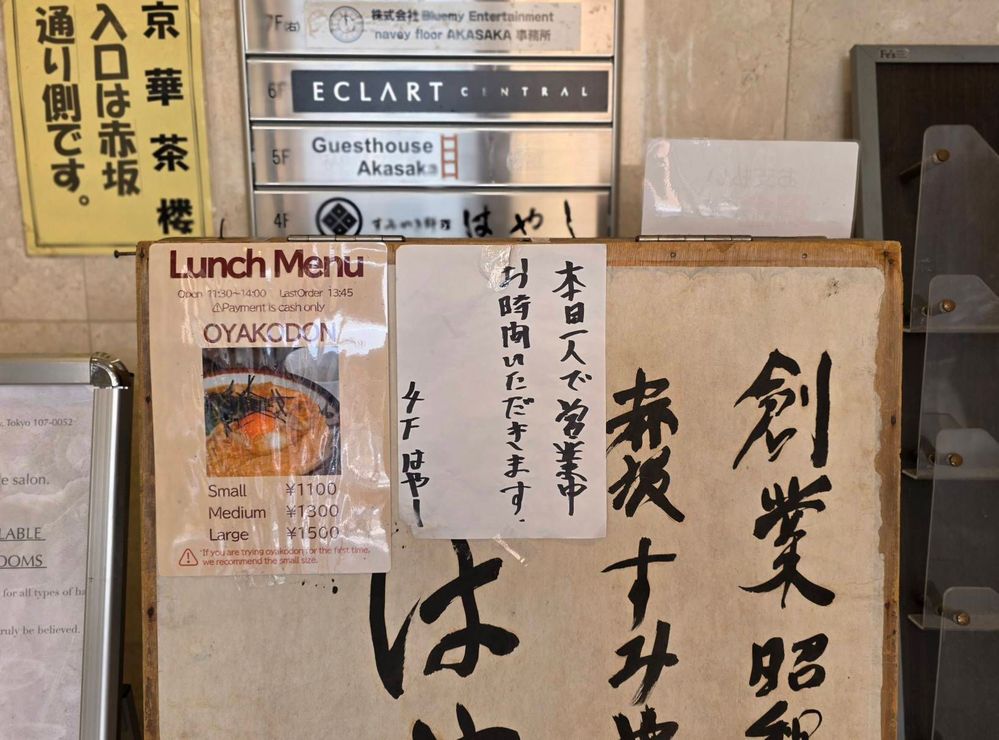 京華茶樓
入口は赤坂
通り側です。
7F(右)
株式会社 Bluemy Entertainment
navey floor AKASAKA 事務所
6F
ECLART CENTRAL
5F
Guesthouse
Akasaka
4F
はやし
Fe's
Lunch Menu
Open 11:30~14:00 LastOrder 13:45
⚠Payment is cash only
OYAKODON
Small ¥1100
Medium ¥1300
Large ¥1500
*If you are trying oyakodon for the first time,
we recommend the small size.
本日一人で営業中
お時間いただきます.
4F はやし
創業 昭和
赤坂 すみや
はや
Tokyo 107-0052
salon.
for all types of
be believed.